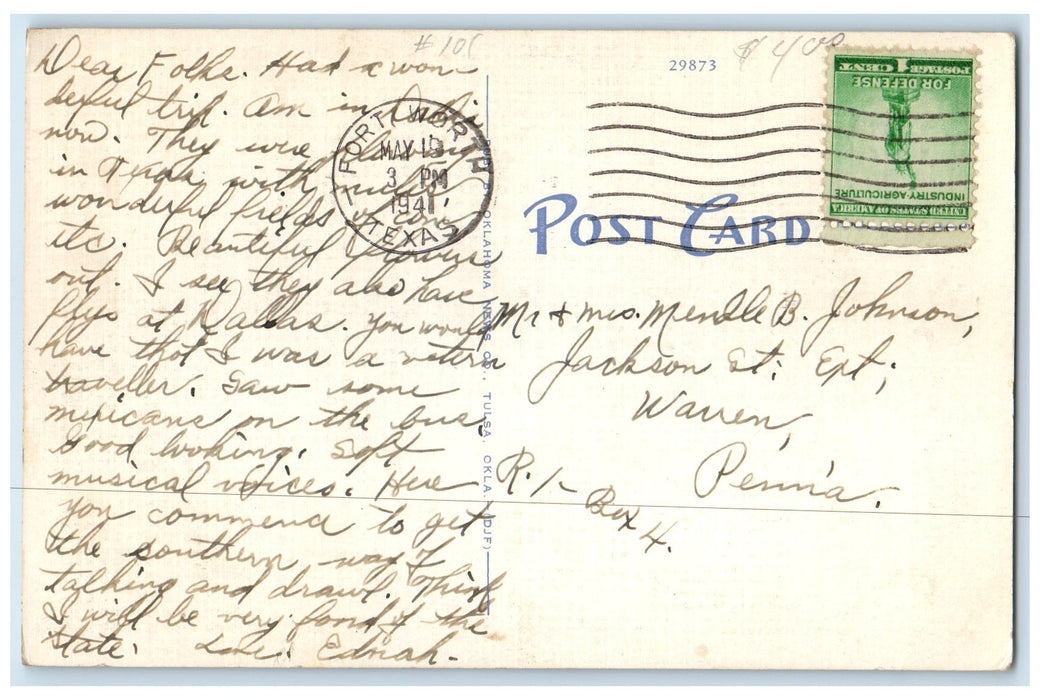 Dear Folks. Had a won-
derful trip. Am in
now. They were
in Texas with
wonderful fields
etc. Beautiful flowers
out. I see they also have
flys at Dallas. You would
have thot I was a vetern
traveller. Saw some
mexicans on the bus.
Good looking. Soft
musical voices. Here
you commence to get
the southern way of
talking and drawl. Think
I will be very fond of the
state. Love. Edriah.
#10
$4.00
29873
FORT WORTH
MAY 19
3 PM
1941
TEXAS
POST CARD
UNITED STATES OF AMERICA
INDUSTRY·AGRICULTURE
FOR DEFENSE
1 CENT
POSTAGE
OKLAHOMA NEWS CO., TULSA, OKLA. (DJF)
Mr & Mrs. Mendle B. Johnson,
Jackson St. Ext;
Warren,
Penn'a.
R. 1-
Box 4.